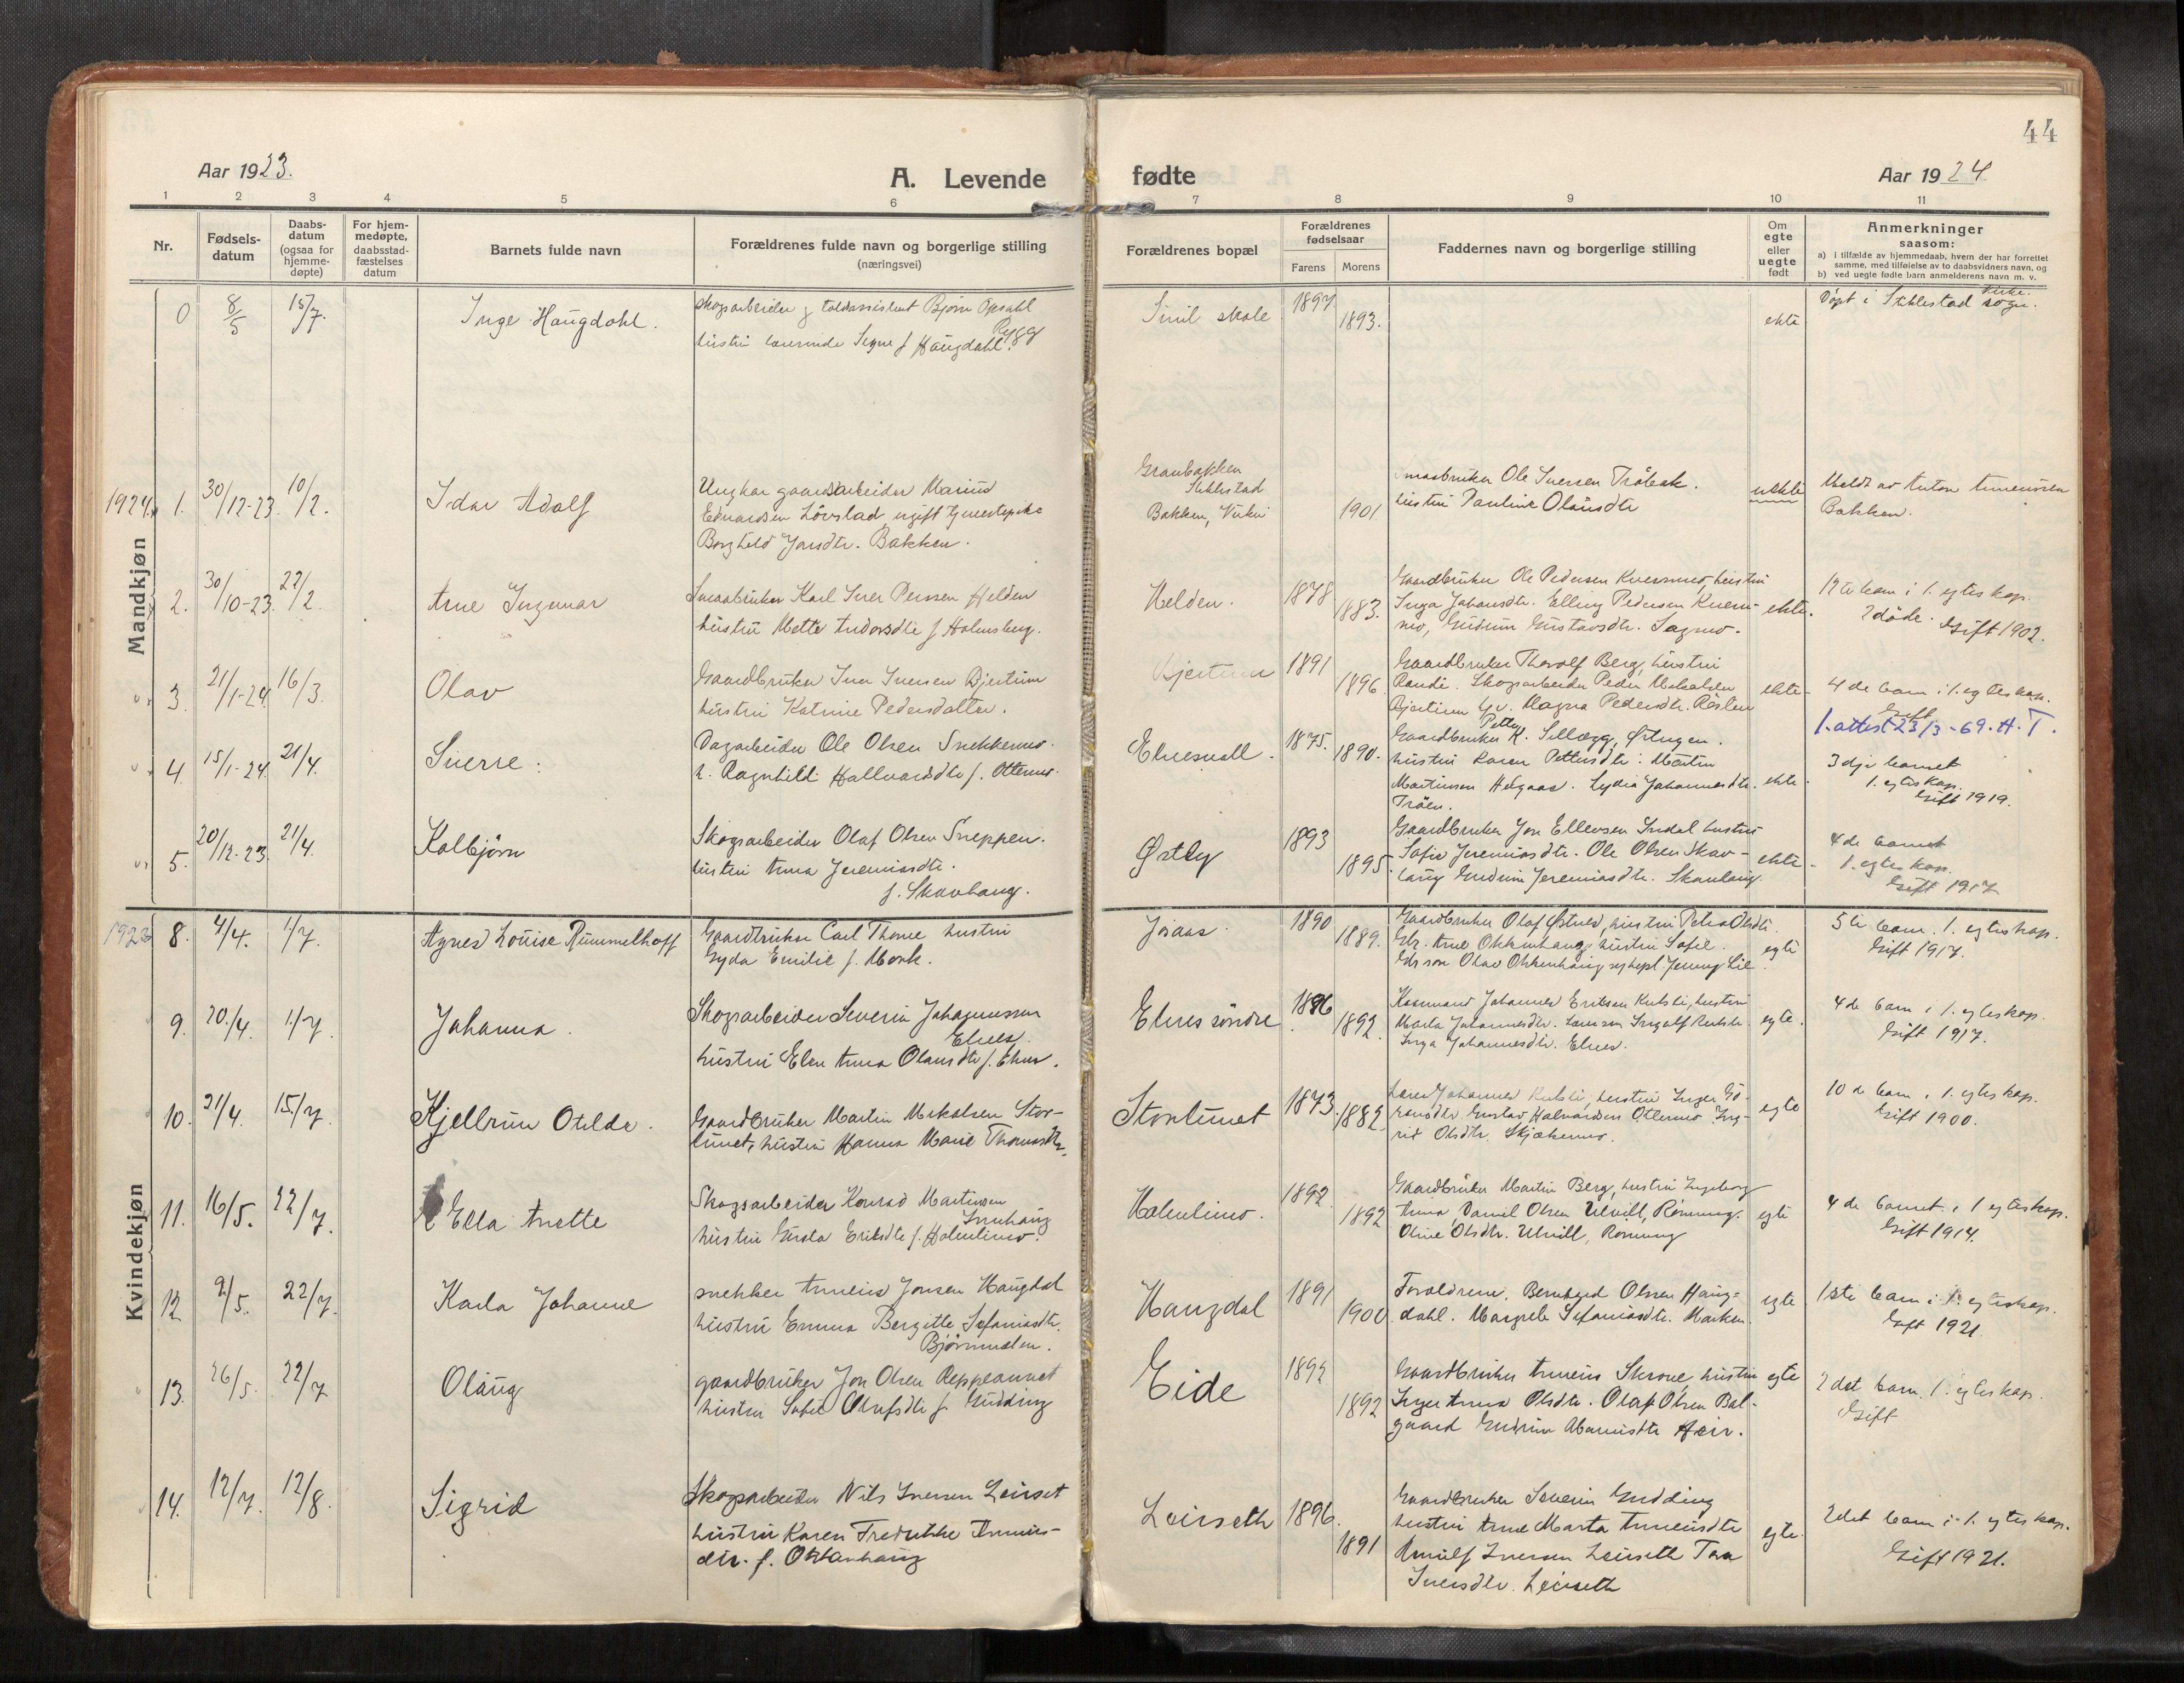 44
Aar 1923.
A. Levende fødte
Aar 1924
1 2 3 4 5 6 7 8 9 10 11
Nr.
Fødsels-
datum
Daabs-
datum
(ogsaa for
hjemme-
døpte)
For hjem-
medøpte,
daabsstad-
fæstelses
datum
Barnets fulde navn
Forældrenes fulde navn og borgerlige stilling
(næringsvei)
Forældrenes bopæl
Forældrenes
fødselsaar
Farens Morens
Faddernes navn og borgerlige stilling
Om
egte
eller
uegte
født
Anmerkninger
saasom:
a) i tilfælde av hjemmedaab, hvem der har forrettet
samme, med tilføielse av to daabsvidners navn, og
b) ved uegte fødte barn anmelderens navn m. v.
Mandkjøn
0 8/5 15/7. Inge Haugdahl.
Skogsarbeider og toldassistent Bjørn Opsahl
Rygg
hustru lærerinde Signe f Haugdahl.
skole 1897 1893. ekte
Døpt i Stiklestad kirke
sogn.
1924. 1. 30/12-23. 10/2. Idar Adolf
Ungkar gaardsarbeider Marius
Edvardsen Lövstad, ugift tjenestepike
Borghild Jonsdtr. Bakken.
Granbakken
Stiklestad
Bakken, 1901
Smaabruker Ole Iversen Tröbak.
hustru Pauline Olausdtr
uekte
Meldt av Anton
Bakken.
2. 30/10-23. 22/2. Arne Ingemar
Smaabruker Karl Iver Perssen Helden
hustru Mette Andorsdtr f Holmsberg.
Helden. 1878 1883.
Gaardbruker Ole Pedersen Kvernmo, hustru
Inga Johansdtr. Elling Pedersen Kvern-
mo, Gudrun Gustavsdtr. Sagmo.
ekte.
12te barn i 1. egteskap.
2 døde. Gift 1902.
3. 21/1-24 16/3. Olav
Gaardbruker Iver Iversen Bjertum
hustru Katrine Pedersdatter.
Bjertum 1891 1896.
Gaardbruker Thorolf Berg, hustru
Randi. Skogsarbeider Peder Mikalsen
Bjertum Gv. Magna Pedersdtr.
ekte
4 de barn i 1. egteskap.
Gift
1. attest 23/3-69. H. T.
4. 15/1-24. 21/4. Sverre.
Dagarbeider Ole Olsen Snekkermo.
h. Ragnhild Hallvardsdtr f. Ottermo.
1875. 1890.
Petter
Gaardbruker K. Østugen.
hustru Karen Pettersdtr. Martin
Martinsen Helgaas. Lydia Johannesdtr.
Tröen.
ekte.
3 dje barnet
1. egteskap.
Gift 1919.
5. 20/12-23. 21/4. Kolbjørn
Skogsarbeider Olaf Olsen Sneppen.
hustru Anna Jeremiasdtr.
f. Skavhaug.
Østby 1893 1895.
Gaardbruker Jon Ellevsen Indal hustru
Sofie Jeremiasdtr. Ole Olsen Skav-
haug Gudrun Jeremiasdtr. Skavhaug.
ekte.
4 de barnet
1. egteskap.
Gift 1917
Kvindekjøn
1923 8. 4/4. 1/7. Agnes Louise Rummelhoff
Gaardbruker Carl Thorne hustru
Gyda Emilie f. Monk.
Jøraas. 1890 1889.
Gaardbruker Olaf Østvold, hustru Petra Olsdtr.
Gbr. Arne Okkenhaug, hustru Sofie.
Gbr søn Olav Okkenhaug Jenny Lie
egte
5 te barn. 1. egteskap.
Gift 1917.
9. 20/4. 1/7. Johanna.
Skogsarbeider Severin Johannessen
Elnes.
hustru Elen Anna Olausdtr f. Elnes.
Elnes søndre 1886 1892.
Johannes Eriksen Kulsli, hustru
Marta Johannesdtr. Ingolf Kulsli.
Inga Johannesdtr. Elnes.
egte.
4 de barn i 1. egteskap.
Gift 1917.
10. 21/4. 15/7. Kjellrun Otelde.
Gaardbruker Martin Mikalsen Stor-
lunet, hustru Hanna Marie Thomasdtr.
Storlunet 1873. 1882.
Johannes Kulsli, hustru Inger Gö-
ransdtr. Gustav Halvardsen Ottermo Ing-
rid Olsdtr. Skjækermo.
egte
10 de barn i 1. egteskap.
Gift 1900.
11. 16/5. 22/7. Ella Anette
Skogsarbeider Konrad Martinsen
hustru Gusta Eriksdtr f. Holmlimo.
Holmlimo. 1892. 1892
Gaardbruker Martin Berg, hustru Ingeborg
Anna, Daniel Olsen Ulvill,
Oline Olsdtr. Ulvill,
egte
4 de barnet i 1 egteskap.
Gift 1914.
12 9/5. 22/7. Karla Johanne
snekker Arneus Jonsen Haugdal
hustru Emma Bergitte Sefaniasdtr.
Bjørnmelen.
Haugdal 1891 1900.
Forældrene. Bernhard Olsen Haug-
dahl. Margrete Sefaniasdtr. Marken.
egte
1ste barn i 1. egteskap.
Gift 1921.
13. 26/5. 22/7 Olaug
gaardbruker Jon Olsen Reppeaunet
hustru Sofie Olufsdtr f. Gudding
Eide 1892 1892
Gaardbruker Arneus Skrove, hustru
Inger Anna Olsdtr. Olaf Olsen Bal-
gaard Gudrun Mariusdtr Heir.
egte
2 det barn. 1. egteskap.
Gift
14. 12/7. 12/8. Sigrid
Skogsarbeider Nils Iversen Leirset
hustru Karen Fredrikke Arneus-
dtr. f. Okkenhaug
Leirseth 1896. 1891
Gaardbruker Severin Gudding
hustru Anne Marta Arneusdtr
Arnulf Iversen Leirseth Tora
Iversdtr. Leirseth
egte.
2det barn i 1. egteskap.
Gift 1921.